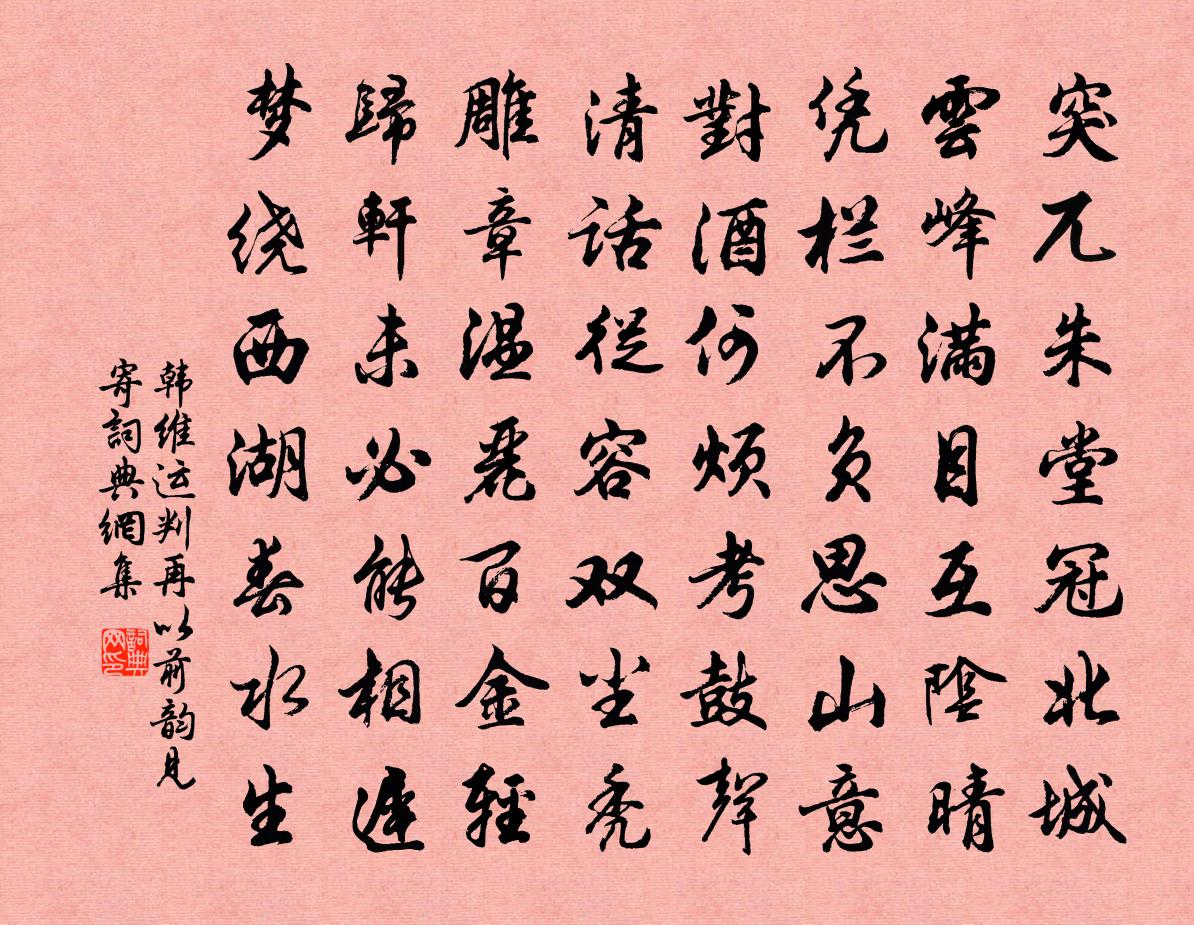 突兀朱堂冠北城
雲峰满目互陰晴
凭栏不负思山意
對酒何煩考鼓聲
清话從容双尘秃
雕章温麗百金輕
歸軒未必能相遲
梦绕西湖春水生
韩维运判再以前韵見
寄詞典網集
詞典网印